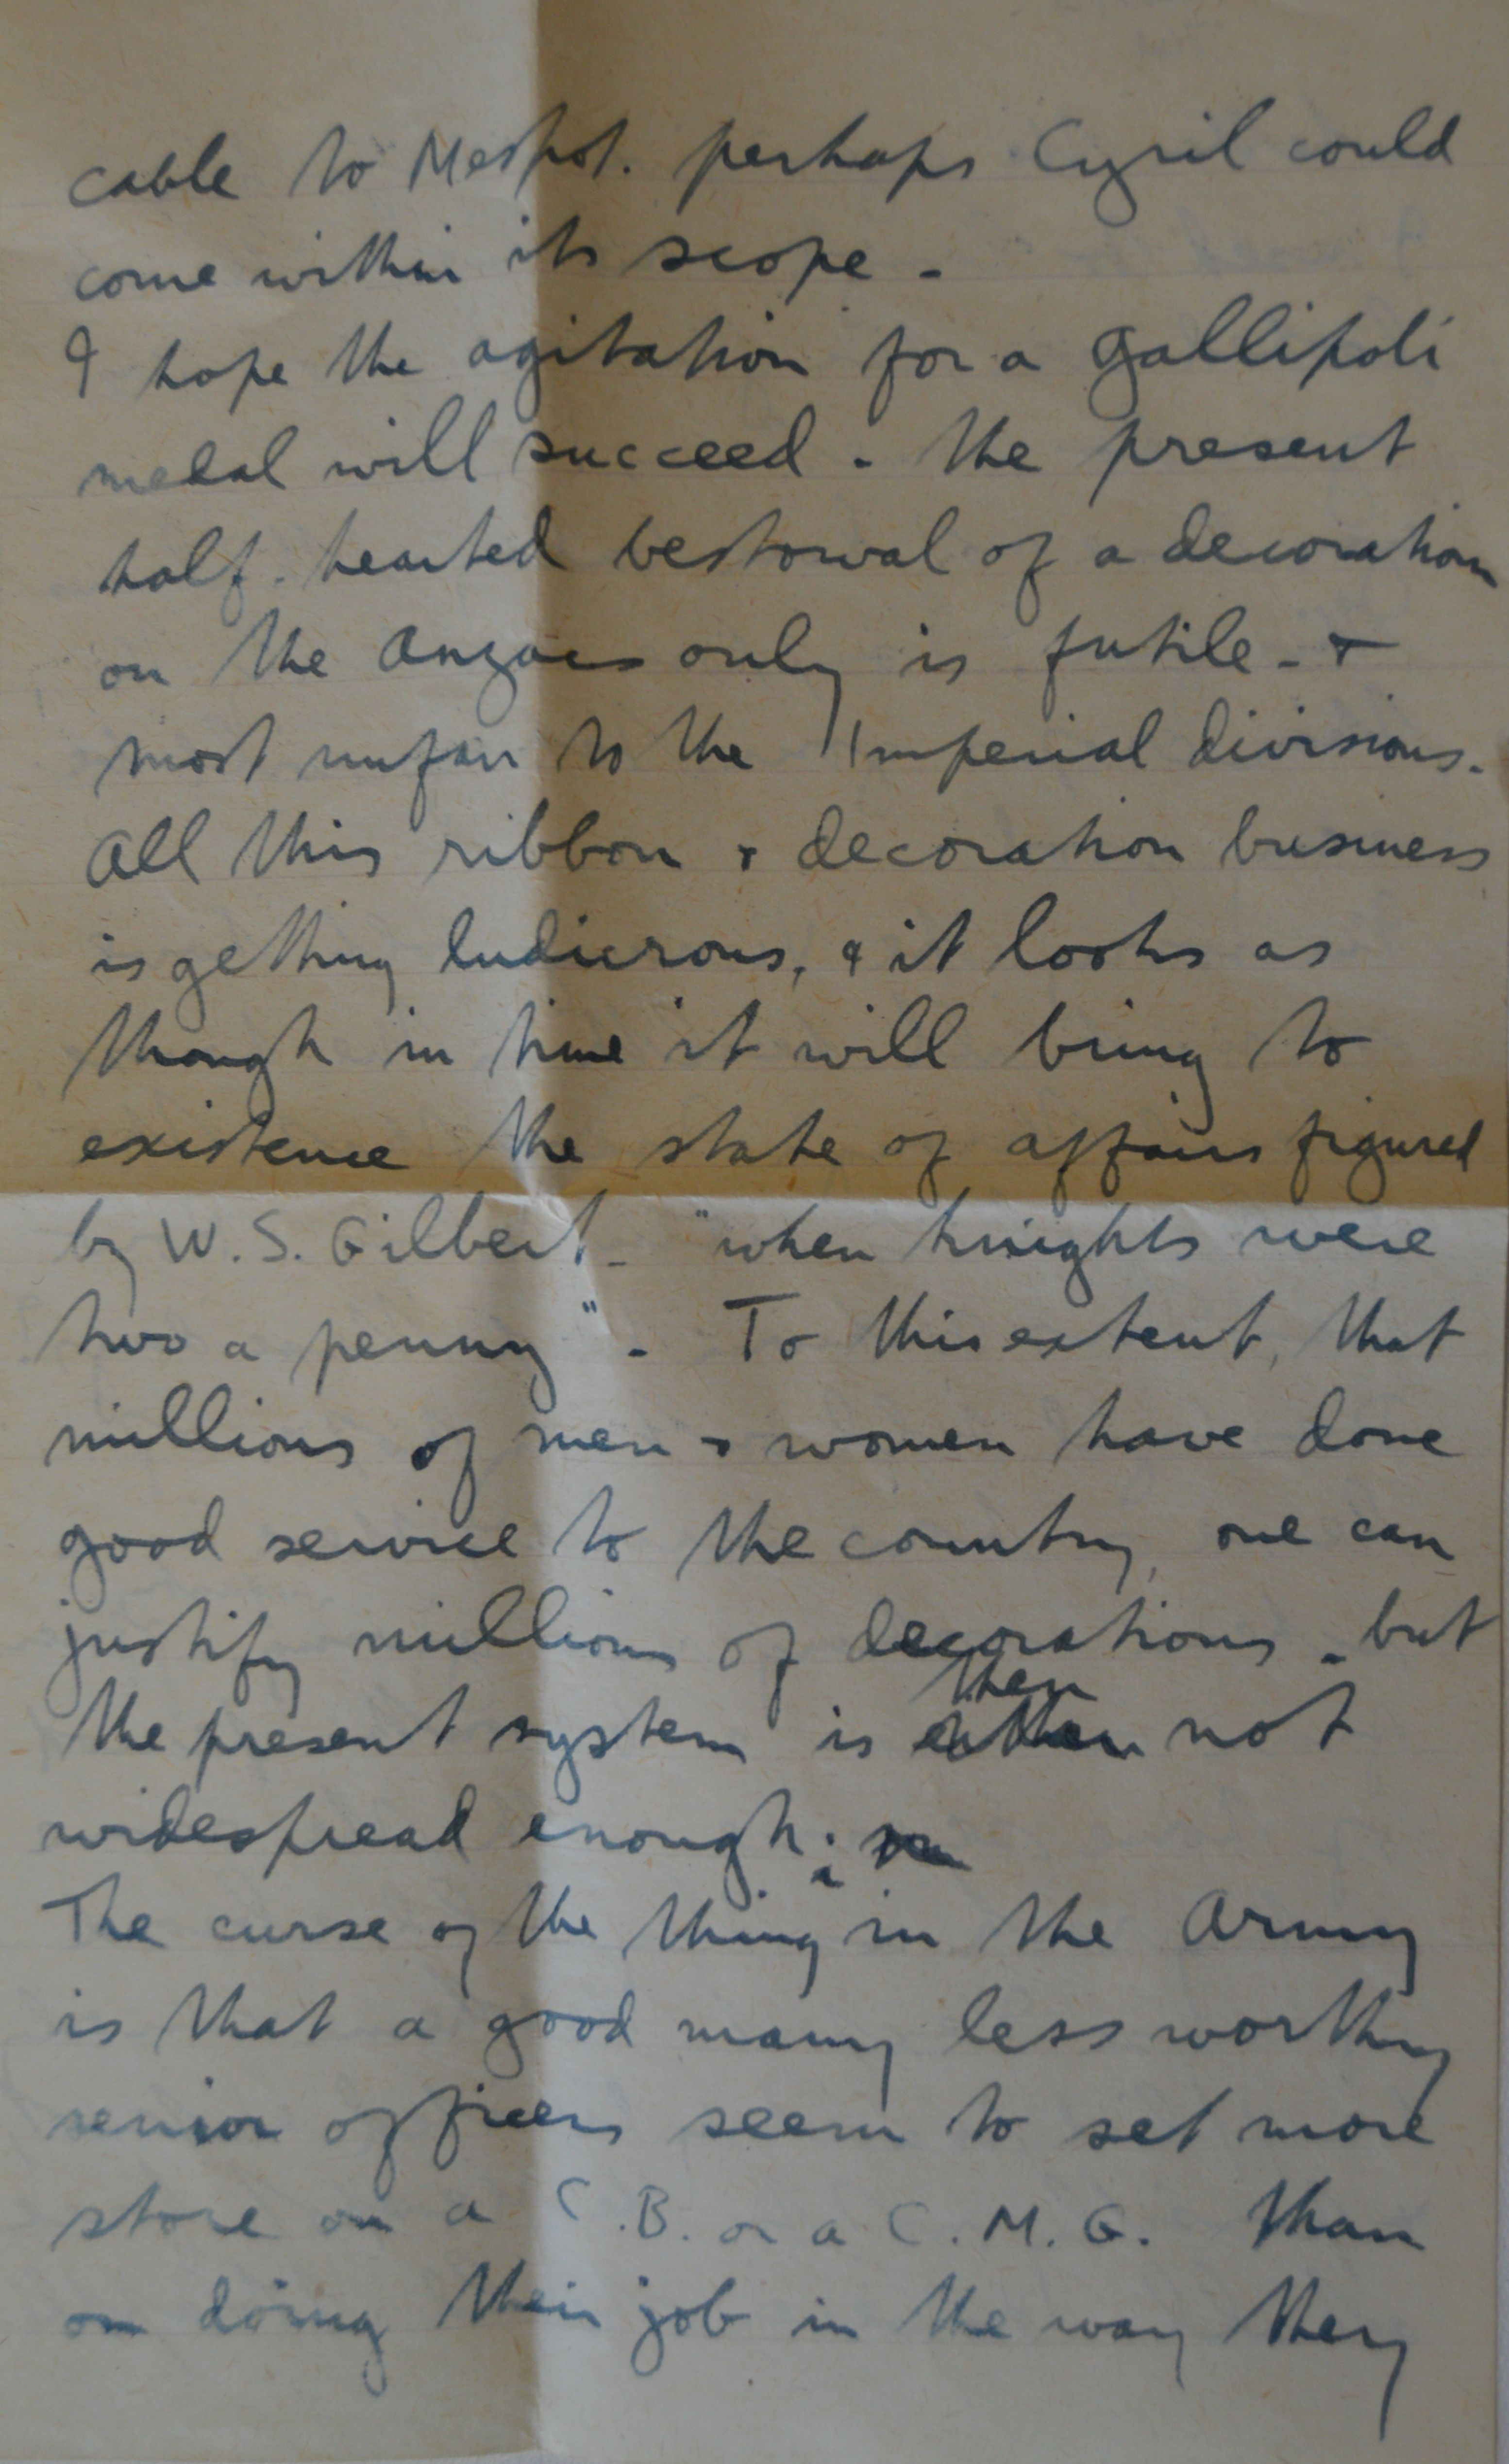 cable to Mespot. perhaps Cyril could
come within its scope -
I hope the agitation for a Gallipoli
medal will succeed - the present
half-hearted bestowal of a decoration
on the Anzacs only is futile - &
most unfair to the Imperial divisions.
All this ribbon & decoration business
is getting ludicrous, & it looks as
though in time it will bring to
existence the state of affairs figured
by W. S. Gilbert - "when knights were
two a penny" - To this extent, that
millions of men & women have done
good service to the country, one can
justify millions of decorations - but
then
the present system is not
widespread enough;
The curse of the thing in the Army
is that a good many less worthy
senior officers seem to set more
store on a C.B. or a C.M.G. than
on doing their job in the way they